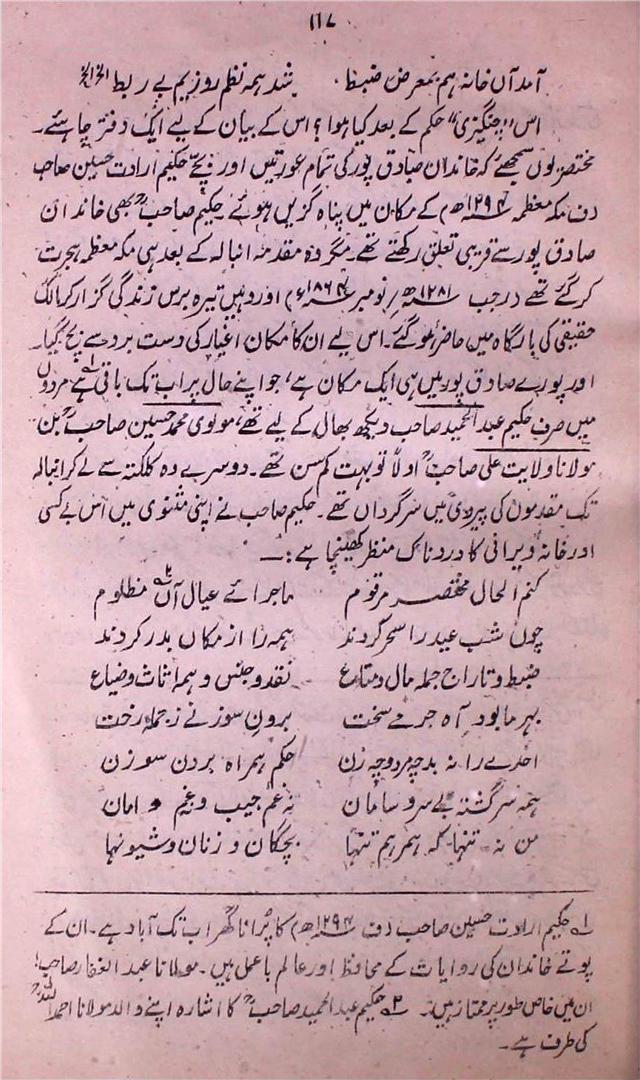 ۱۱۷
آمد آں خانہ ہم بمعرض ضبط ۔ شد ہمہ نظم روزیم بے ربط الخ الخ
اس "چنگیزی" حکم کے بعد کیا ہوا؟ اس کے بیان کے لیے ایک دفتر چاہئے۔
مختصر یوں سمجھئے کہ خاندان صادق پور کی تمام عورتیں اور بچے حکیم ارادت حسین صاحب
(ف مکہ معظمہ ۱۲۹۴ھ) کے مکان میں پناہ گزیں ہوئے حکیم صاحبؒ بھی خاندان
صادق پور سے قریبی تعلق رکھتے تھے۔ مگر وہ مقدمۂ انبالہ کے بعد ہی مکہ معظمہ ہجرت
کر گئے تھے (رجب ۱۲۸۱ھ/نومبر ۱۸۶۴ء) اور وہیں تیرہ برس زندگی گزار کر مالک
حقیقی کی بارگاہ میں حاضر ہو گئے۔ اس لیے ان کا مکان اغیار کی دست برد سے بچ گیا۔
اور پورے صادق پور میں ہی ایک مکان ہے، جو اپنے حال پر اب تک باقی ہے۱؎ مردوں
میں صرف حکیم عبد الحمید صاحب دیکھ بھال کے لیے تھے، مولوی محمد حسین صاحبؒ بن
مولانا ولایت علی صاحبؒ اولاً تو بہت کم سن تھے۔ دوسرے وہ کلکتہ سے لے کر انبالہ
تک مقدموں کی پیروی میں سرگرداں تھے۔ حکیم صاحب نے اپنی مثنوی میں اس بے کسی
اور خانہ ویرانی کا دردناک منظر کھینچا ہے:۔
کنم الحال مختصر مرقوم ماجرائے عیال آں۲؎ مظلوم
چوں شب عید را سحر کردند ہمہ را از مکاں بدر کردند
ضبط و تاراج جملہ مال و متاع نقد و جنس و ہمہ اثاث و ضیاع
بہر ما بود آہ جرمے سخت بردن سوزنے ز جملہ رخت
احدے را نہ بد چہ مرد و چہ زن حکم ہمراہ بردن سوزن
ہمہ سرگشتہ بے سر و سامان نہ غم جیب و نے غم دامان
من نہ تنہا کہ ہمرہم تنہا بچگان و زنان و شیونہا
۱؎ حکیم ارادت حسین صاحب (ف ۱۲۹۴ھ) کا پُرانا گھر اب تک آباد ہے۔ ان کے
پوتے خاندان کی روایات کے محافظ اور عالم باعمل ہیں۔ مولانا عبد الغفار صاحب
ان میں خاص طور پر ممتاز ہیں۔ ۲؎ حکیم عبد الحمید صاحبؒ کا اشارہ اپنے والد مولانا احمد اللہؒ
کی طرف ہے۔